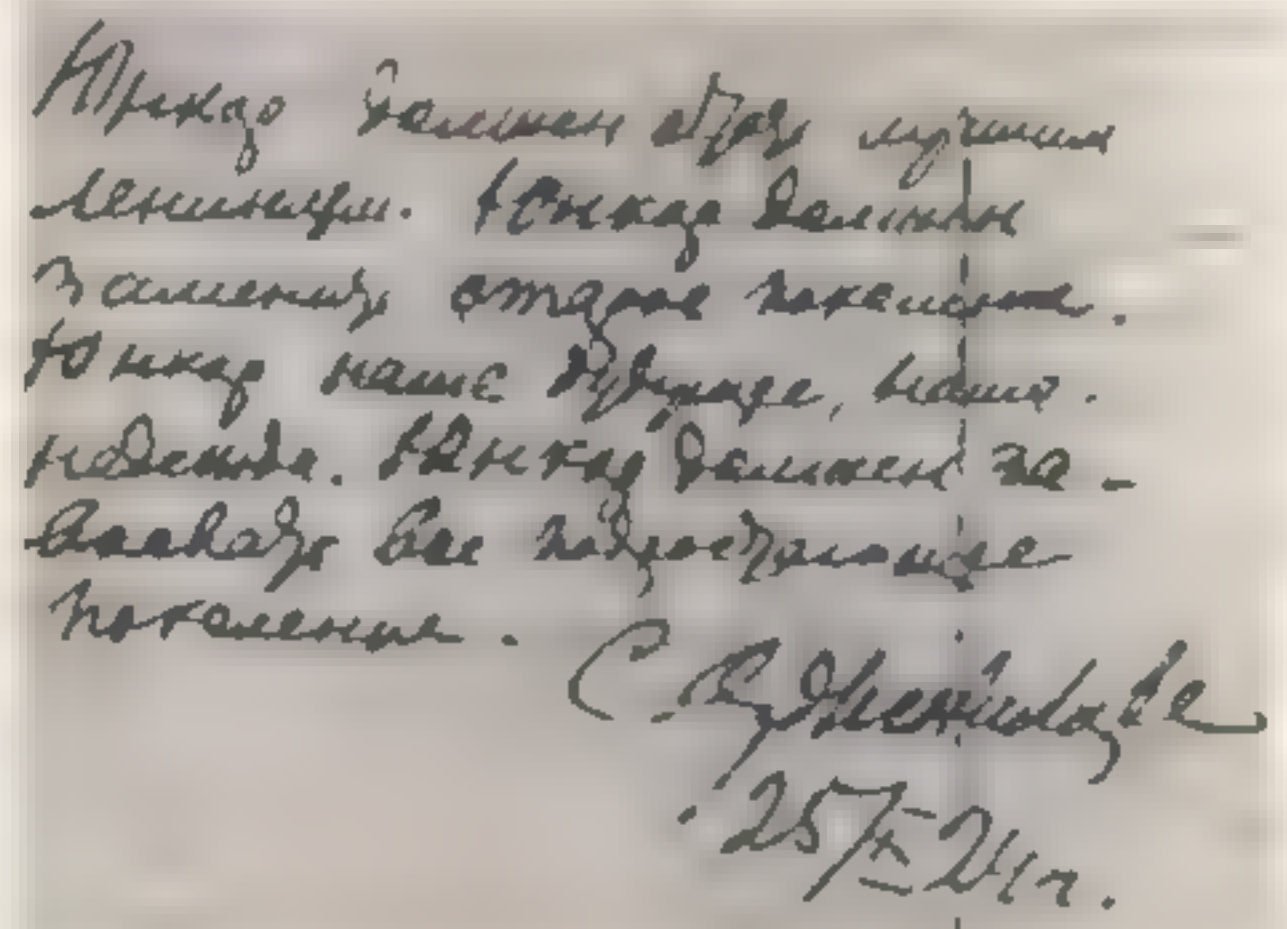 Юнкор должен быть лучшим
ленинцем. Юнкор должен
заменить старое поколение.
Юнкор наше будущее, наша
надежда. Юнкор должен за-
воевать все подрастающее
поколение.
С.
25/X 24 г.